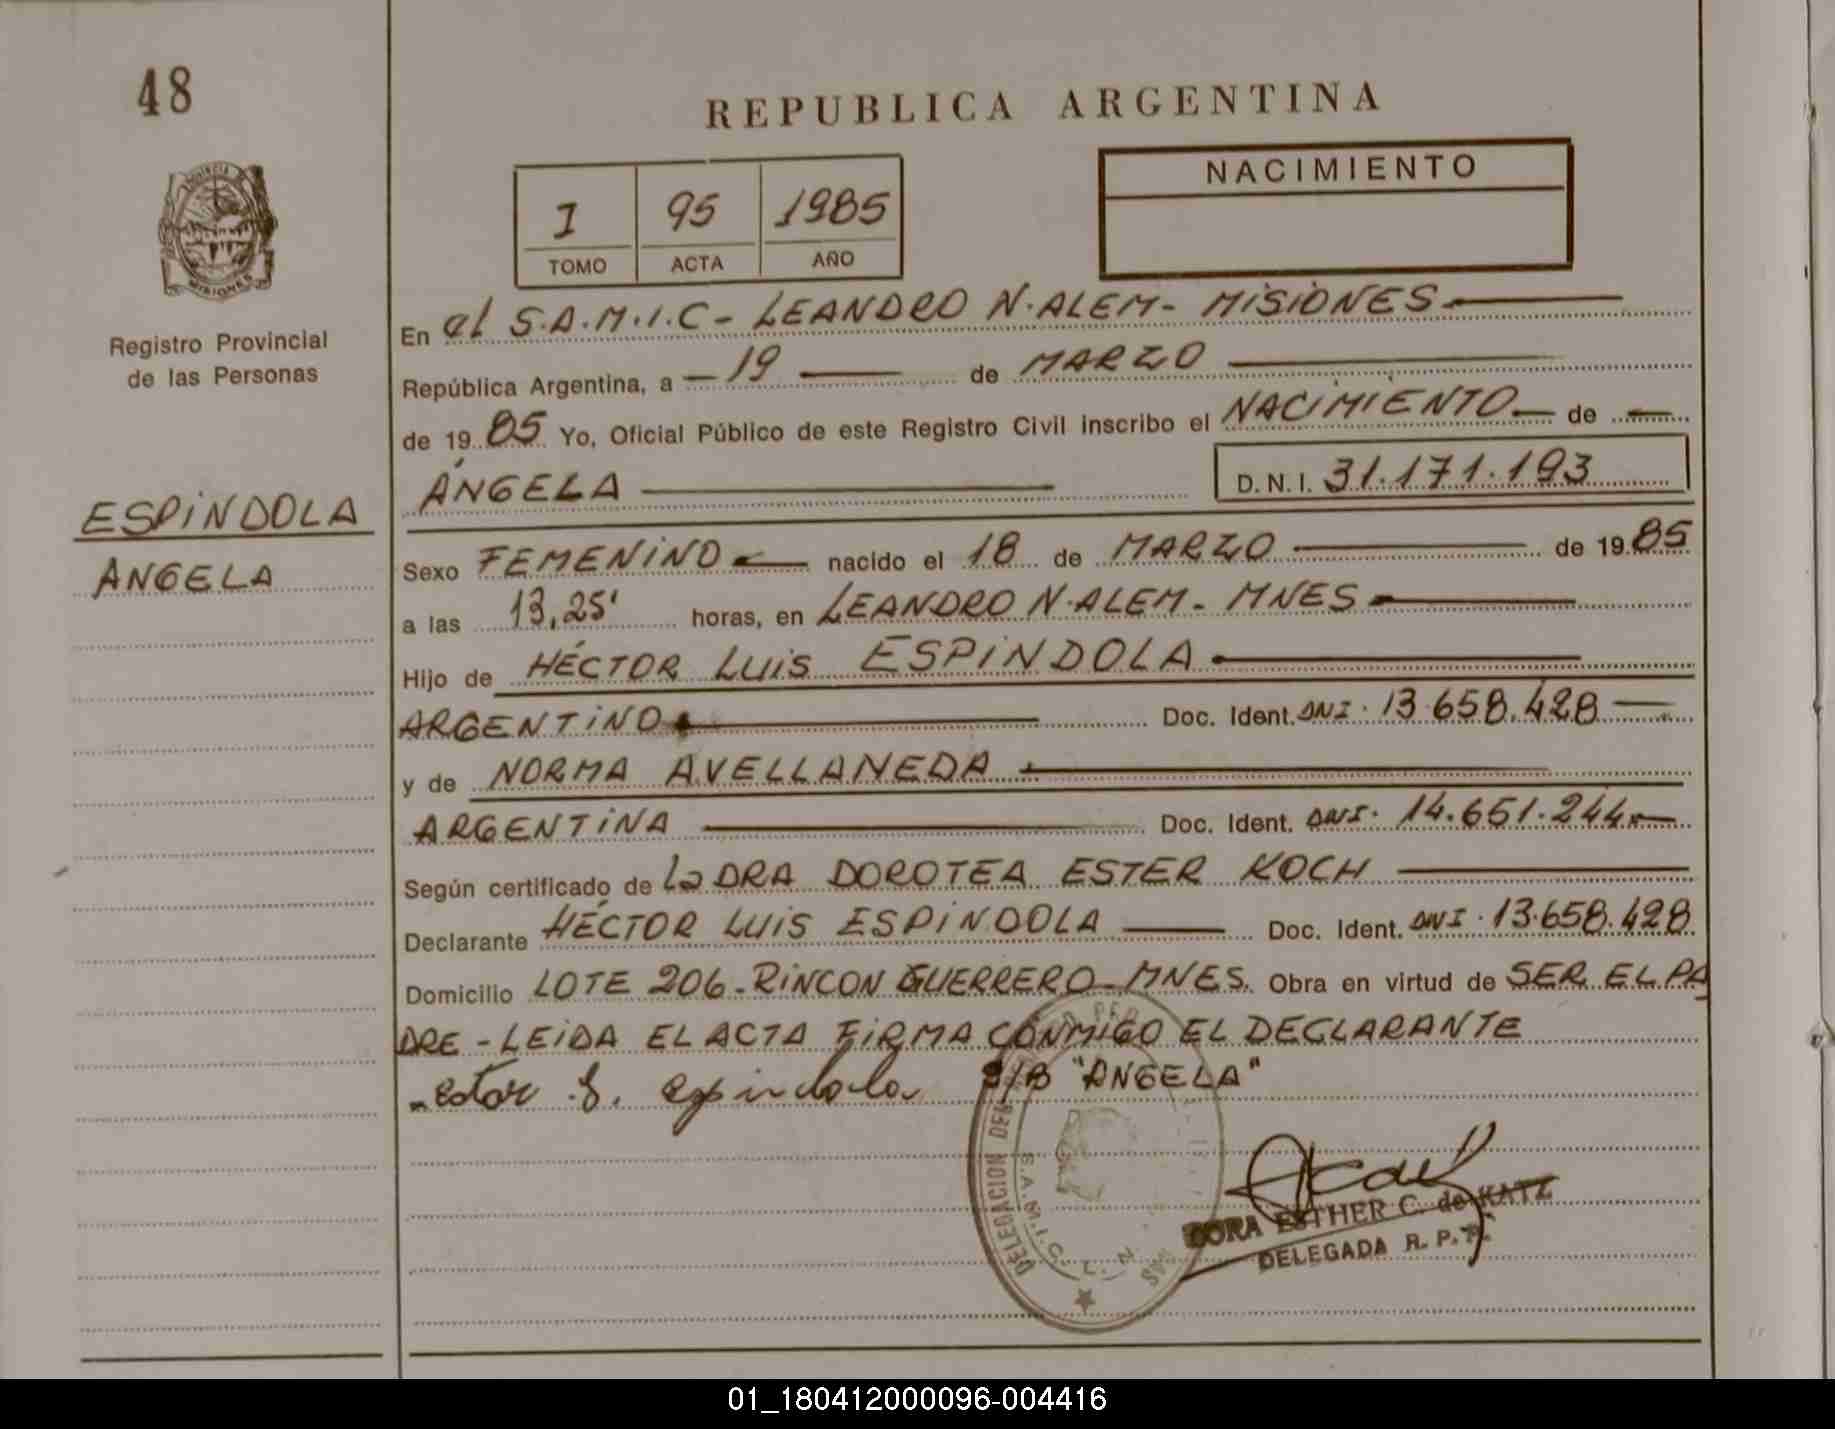 48
REPUBLICA ARGENTINA
NACIMIENTO
I 95 1985
TOMO ACTA AÑO
MISIONES
Registro Provincial
de las Personas
ESPINDOLA
ANGELA
En el S.A.M.I.C - LEANDRO N. ALEM - MISIONES
República Argentina, a - 19 de MARZO
de 19 85 Yo, Oficial Público de este Registro Civil inscribo el NACIMIENTO de
ÁNGELA D.N.I. 31.171.193
Sexo FEMENINO nacido el 18 de MARZO de 19 85
a las 13,25' horas, en LEANDRO N. ALEM - MNES
Hijo de HÉCTOR LUIS ESPINDOLA
ARGENTINO Doc. Ident. DNI. 13.658.428
y de NORMA AVELLANEDA
ARGENTINA Doc. Ident. DNI. 14.651.244
Según certificado de La DRA DOROTEA ESTER KOCH
Declarante HÉCTOR LUIS ESPINDOLA Doc. Ident. DNI. 13.658.428
Domicilio LOTE 206 - RINCON GUERRERO - MNES. Obra en virtud de SER EL PA
DRE - LEIDA EL ACTA FIRMA CONMIGO EL DECLARANTE
S/B "ANGELA"
espindola
DELEGACION DEL
S.A.M.I.C. L. N.
DORA ESTHER C. de KATZ
DELEGADA R. P. P.
01_180412000096-004416